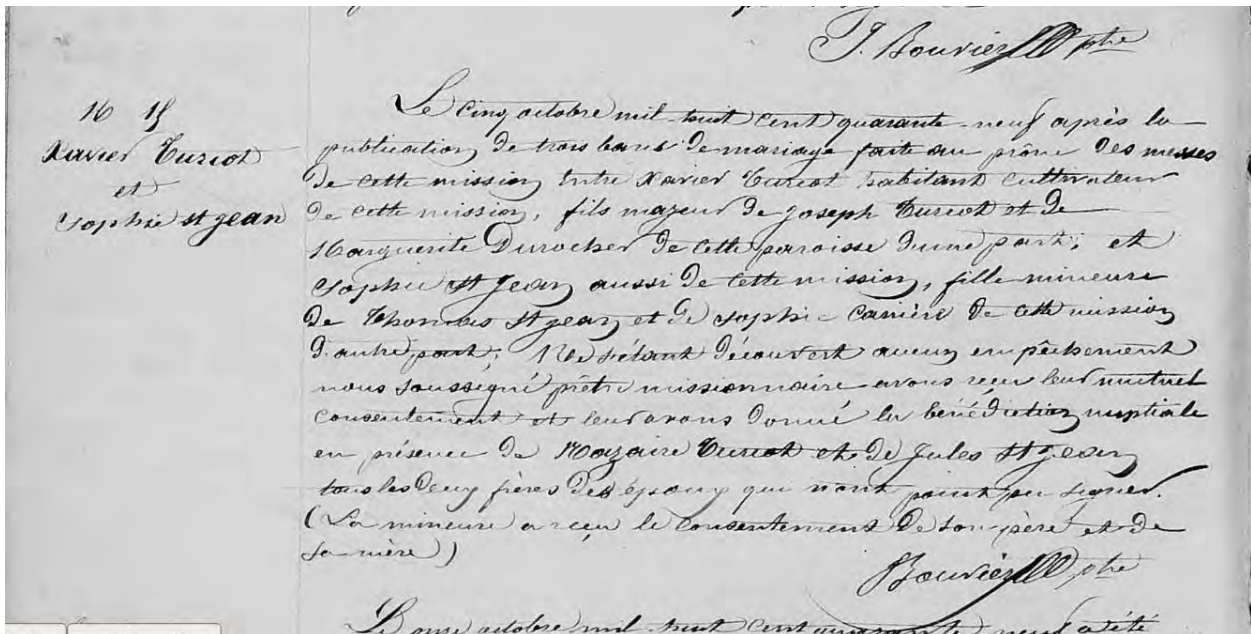 J. Bouvier ptre
16 15
Xavier Turcot
et
Sophie St Jean
Le cinq octobre mil-huit cent quarante-neuf après la
publication de trois bans de mariage faite au prône des messes
de cette mission entre Xavier Turcot habitant cultivateur
de cette mission, fils majeur de Joseph Turcot et de
Marguerite Durocher de cette paroisse d'une part; et
Sophie St Jean aussi de cette mission, fille mineure
de Thomas St Jean et de Sophie Carrière de cette mission
d'autre part; Ne s'étant découvert aucun empêchement
nous soussigné prêtre missionnaire avons reçu leur mutuel
consentement et leur avons donné la bénédiction nuptiale
en présence de Nazaire Turcot et de Jules St Jean
tous les deux frères des époux qui n'ont point pu signer.
(La mineure a reçu le consentement de son père et de
sa mère)
Bouvier ptre
Le onze octobre mil-huit cent quarante neuf a été